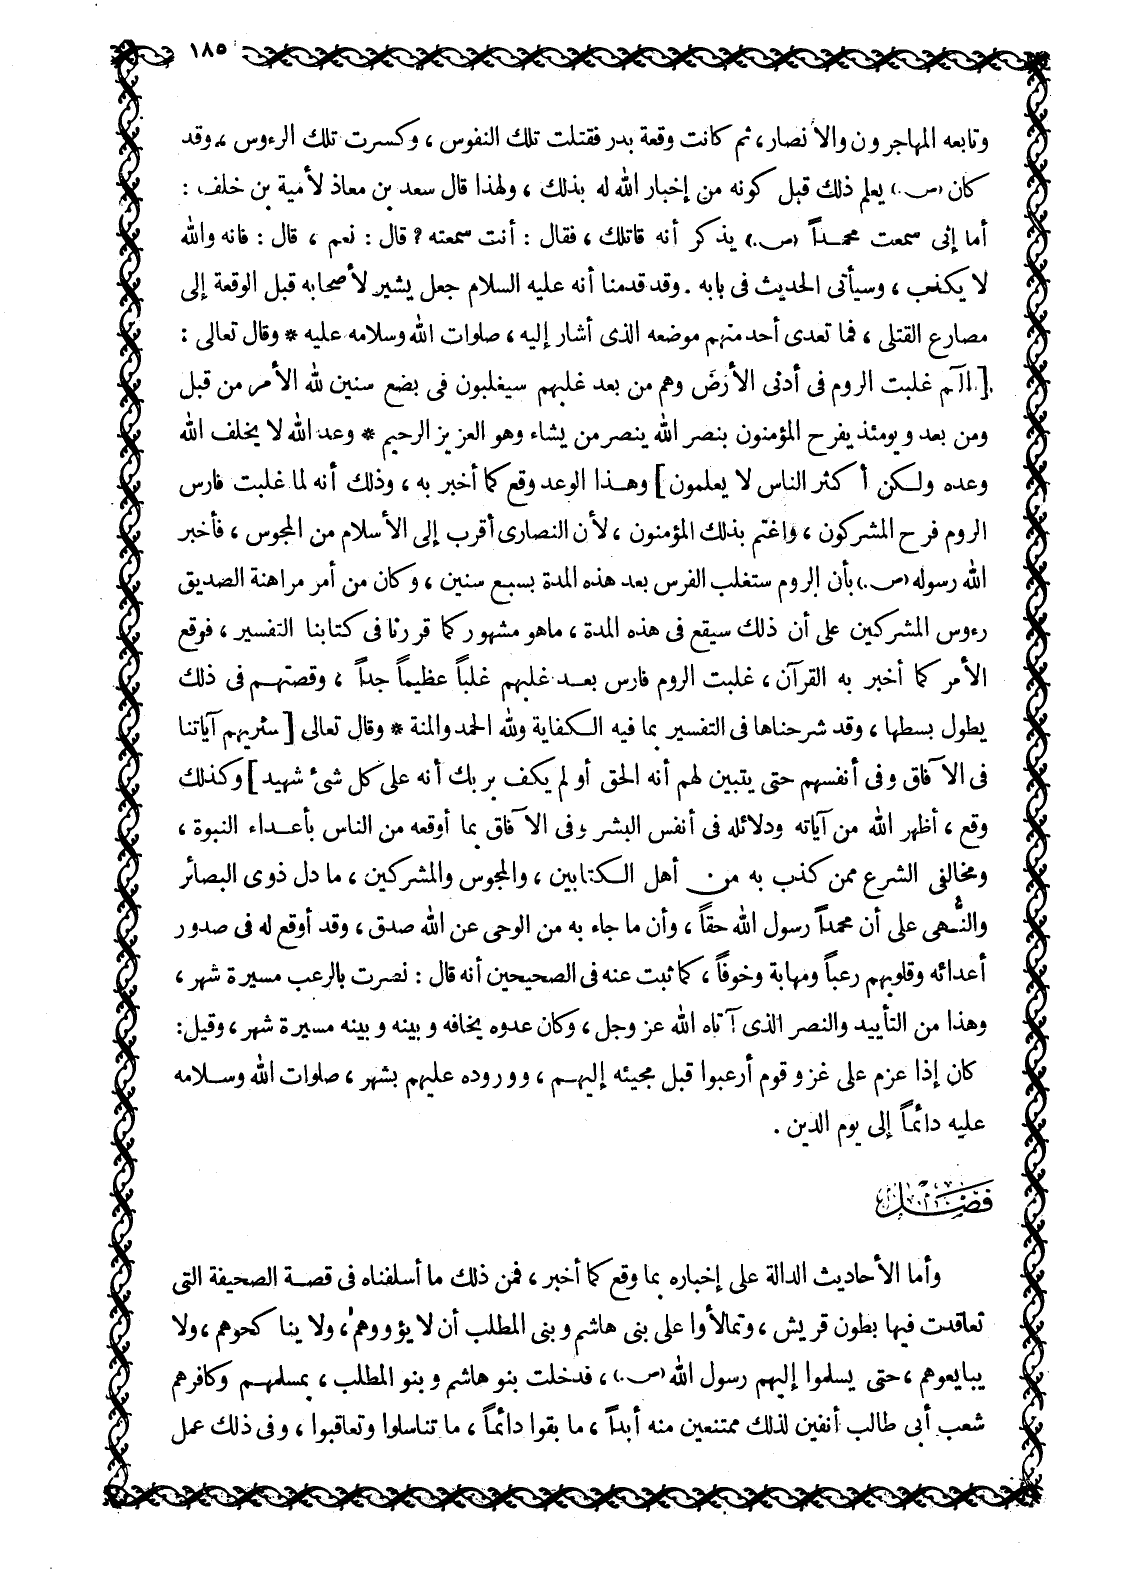 ١٨٥
وتابعه المهاجرون والأنصار، ثم كانت وقعة بدر فقتلت تلك النفوس، وكسرت تلك الرءوس، وقد
كان (ص.) يعلم ذلك قبل كونه من إخبار الله له بذلك، ولهذا قال سعد بن معاذ لأمية بن خلف:
أما إنى سمعت محمداً (ص.) يذكر أنه قاتلك، فقال: أنت سمعته؟ قال: نعم، قال: فانه والله
لا يكذب، وسيأتى الحديث فى بابه. وقد قدمنا أنه عليه السلام جعل يشير لأصحابه قبل الوقعة إلى
مصارع القتلى، فما تعدى أحد منهم موضعه الذى أشار إليه، صلوات الله وسلامه عليه * وقال تعالى:
[الآم غلبت الروم فى أدنى الأرض وهم من بعد غلبهم سيغلبون فى بضع سنين لله الأمر من قبل
ومن بعد ويومئذ يفرح المؤمنون بنصر الله ينصر من يشاء وهو العزيز الرحيم * وعد الله لا يخلف الله
وعده ولـكن أكثر الناس لا يعلمون] وهـذا الوعد وقع كما أخبر به، وذلك أنه لما غلبت فارس
الروم فرح المشركون، واغتم بذلك المؤمنون، لأن النصارى أقرب إلى الأسلام من المجوس، فأخبر
الله رسوله (ص.) بأن الروم ستغلب الفرس بعد هذه المدة بسبع سنين، وكان من أمر مراهنة الصديق
رءوس المشركين على أن ذلك سيقع فى هذه المدة، ماهو مشهور كما قررنا فى كتابنا التفسير، فوقع
الأمر كما أخبر به القرآن، غلبت الروم فارس بعـد غلبهم غلباً عظيماً جداً، وقصتهـم فى ذلك
يطول بسطها، وقد شرحناها فى التفسير بما فيه الـكفاية ولله الحمد والمنة * وقال تعالى [سنريهم آياتنا
فى الآفاق وفى أنفسهم حتى يتبين لهم أنه الحق أو لم يكف بربك أنه على كل شئ شهيد] وكذلك
وقع، أظهر الله من آياته ودلائله فى أنفس البشر وفى الآفاق بما أوقعه من الناس بأعـداء النبوة،
ومخالفى الشرع ممن كذب به من أهل الـكتابين، والمجوس والمشركين، ما دل ذوى البصائر
والنُّـهى على أن محمداً رسول الله حقاً، وأن ما جاء به من الوحى عن الله صدق، وقد أوقع له فى صدور
أعدائه وقلوبهم رعباً ومهابة وخوفاً، كما ثبت عنه فى الصحيحين أنه قال: نصرت بالرعب مسيرة شهر،
وهذا من التأييد والنصر الذى آتاه الله عز وجل، وكان عدوه يخافه وبينه وبينه مسيرة شهر، وقيل:
كان إذا عزم على غزو قوم أرعبوا قبل مجيئه إليهـم، ووروده عليهم بشهر، صلوات الله وسـلامه
عليه دائماً إلى يوم الدين.
فصل
وأما الأحاديث الدالة على إخباره بما وقع كما أخبر، فمن ذلك ما أسلفناه فى قصـة الصحيفة التى
تعاقدت فيها بطون قريش، وتمالأوا على بنى هاشم وبنى المطلب أن لا يؤووهم، ولا يناكحوهم، ولا
يبايعوهم، حتى يسلموا إليهم رسول الله (ص.)، فدخلت بنو هاشم وبنو المطلب، بمسلمهـم وكافرهم
شعب أبى طالب أنفين لذلك ممتنعين منه أبداً، ما بقوا دائماً، ما تناسلوا وتعاقبوا، وفى ذلك عمل